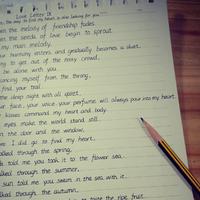 Love Letter IX
the way to find my heart is also looking for you
the melody of friendship fades.
the seeds of love begin to sprout.
my main melody.
humming enters, and gradually becomes a duet.
ing to get out of the noisy crowd,
be alone with you.
ancing myself from the throng,
find your trail.
the deep night with all quiet,
r face, your voice, your perfume will always pour into my heart.
kisses command my heart and body.
eyes make the world stand still.
the door and the window,
I did go to find my heart.
alked through the spring.
told me you took it to the flower sea.
alked through the summer,
sun told me you swam in the sea with it.
alked through the autumn,
taste the ripe fruit.